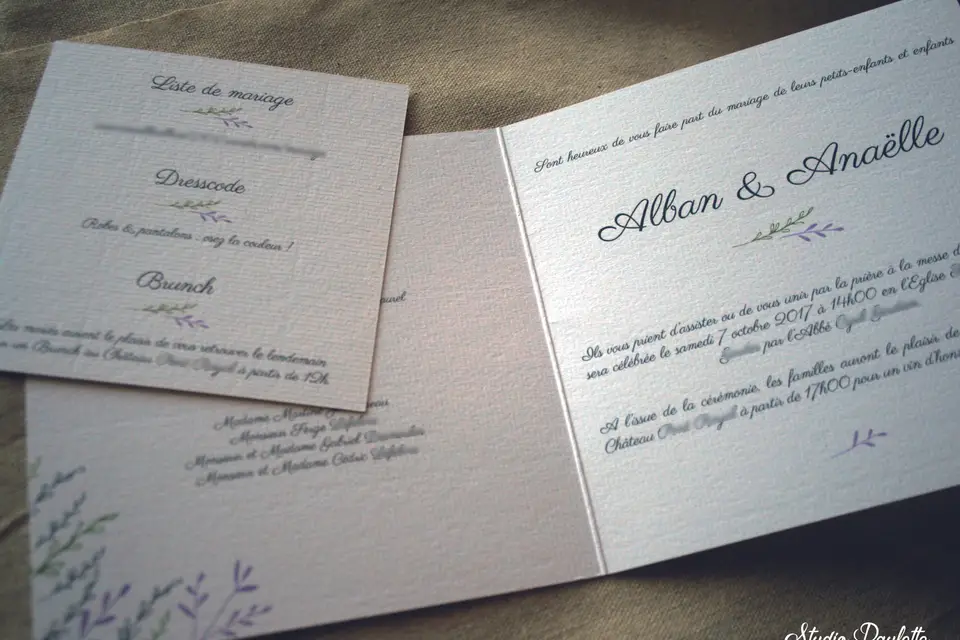 Liste de mariage
Dresscode
Robes & pantalons : osez la couleur !
Brunch
Les mariés auront le plaisir de vous retrouver le lendemain
un Brunch au Château à partir de 12h
Madame
Monsieur Serge
Monsieur et Madame Gabriel
Monsieur et Madame Cédric
Sont heureux de vous faire part du mariage de leurs petits-enfants et enfants
Alban & Anaëlle
Ils vous prient d'assister ou de vous unir par la prière à la messe
sera célébrée le samedi 7 octobre 2017 à 14h00 en l'Eglise
par l'Abbé
A l'issue de la cérémonie, les familles auront le plaisir de
Château à partir de 17h00 pour un vin d'hon
Studio Paulotte